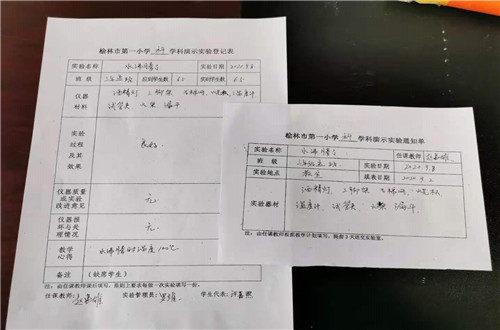 榆林市第一小学 科 学科演示实验登记表
实验名称 水沸腾了 实验日期 2020.9.8
班级 应到学生数 65 实到学生数 65
仪器材料 酒精灯 三脚架 石棉网 烧杯 温度计
试管夹 火柴 漏斗
实验过程及其效果 良好
仪器质量或实验改进意见 无
仪器损坏与处理情况 无
教学心得 水沸腾的温度100℃
备注 (缺席学生)
注:由任课教师课后填写,原则上要求每做一次实验填写一份。
任课教师: 实验管理员: 学生代表:
榆林市第一小学 科 学科演示实验通知单
任课教师
实验名称 水沸腾了
班级 实验日期 2020.9.8
实验地点 教室 填表日期 2020.9.2
实验器材 酒精灯 三脚架 石棉网 烧杯
温度计 试管夹 火柴 漏斗